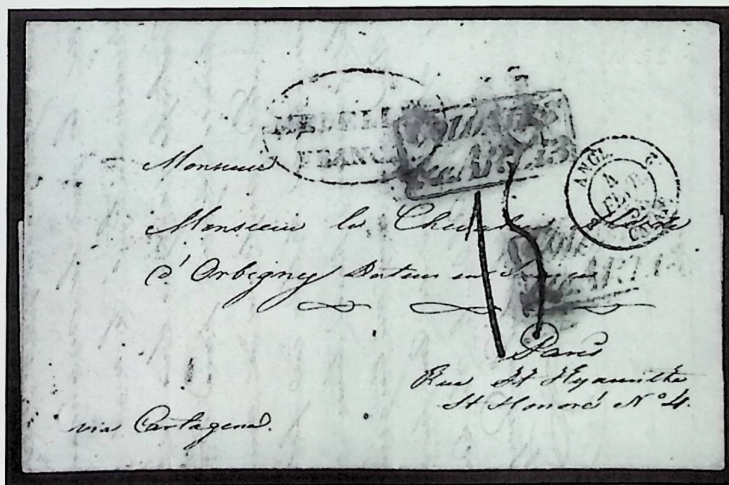 MEDELLIN
FRANCA
COLONIES
&c. ART. 13
ANGL. 2 CALAIS 2
4
Monsieur
Monsieur le Chevalier
d'Orbigny Docteur
COLONIES
&c. ART. 13
15
Paris
Rue St Hyacinthe
St Honoré No 4.
via Cartagena.